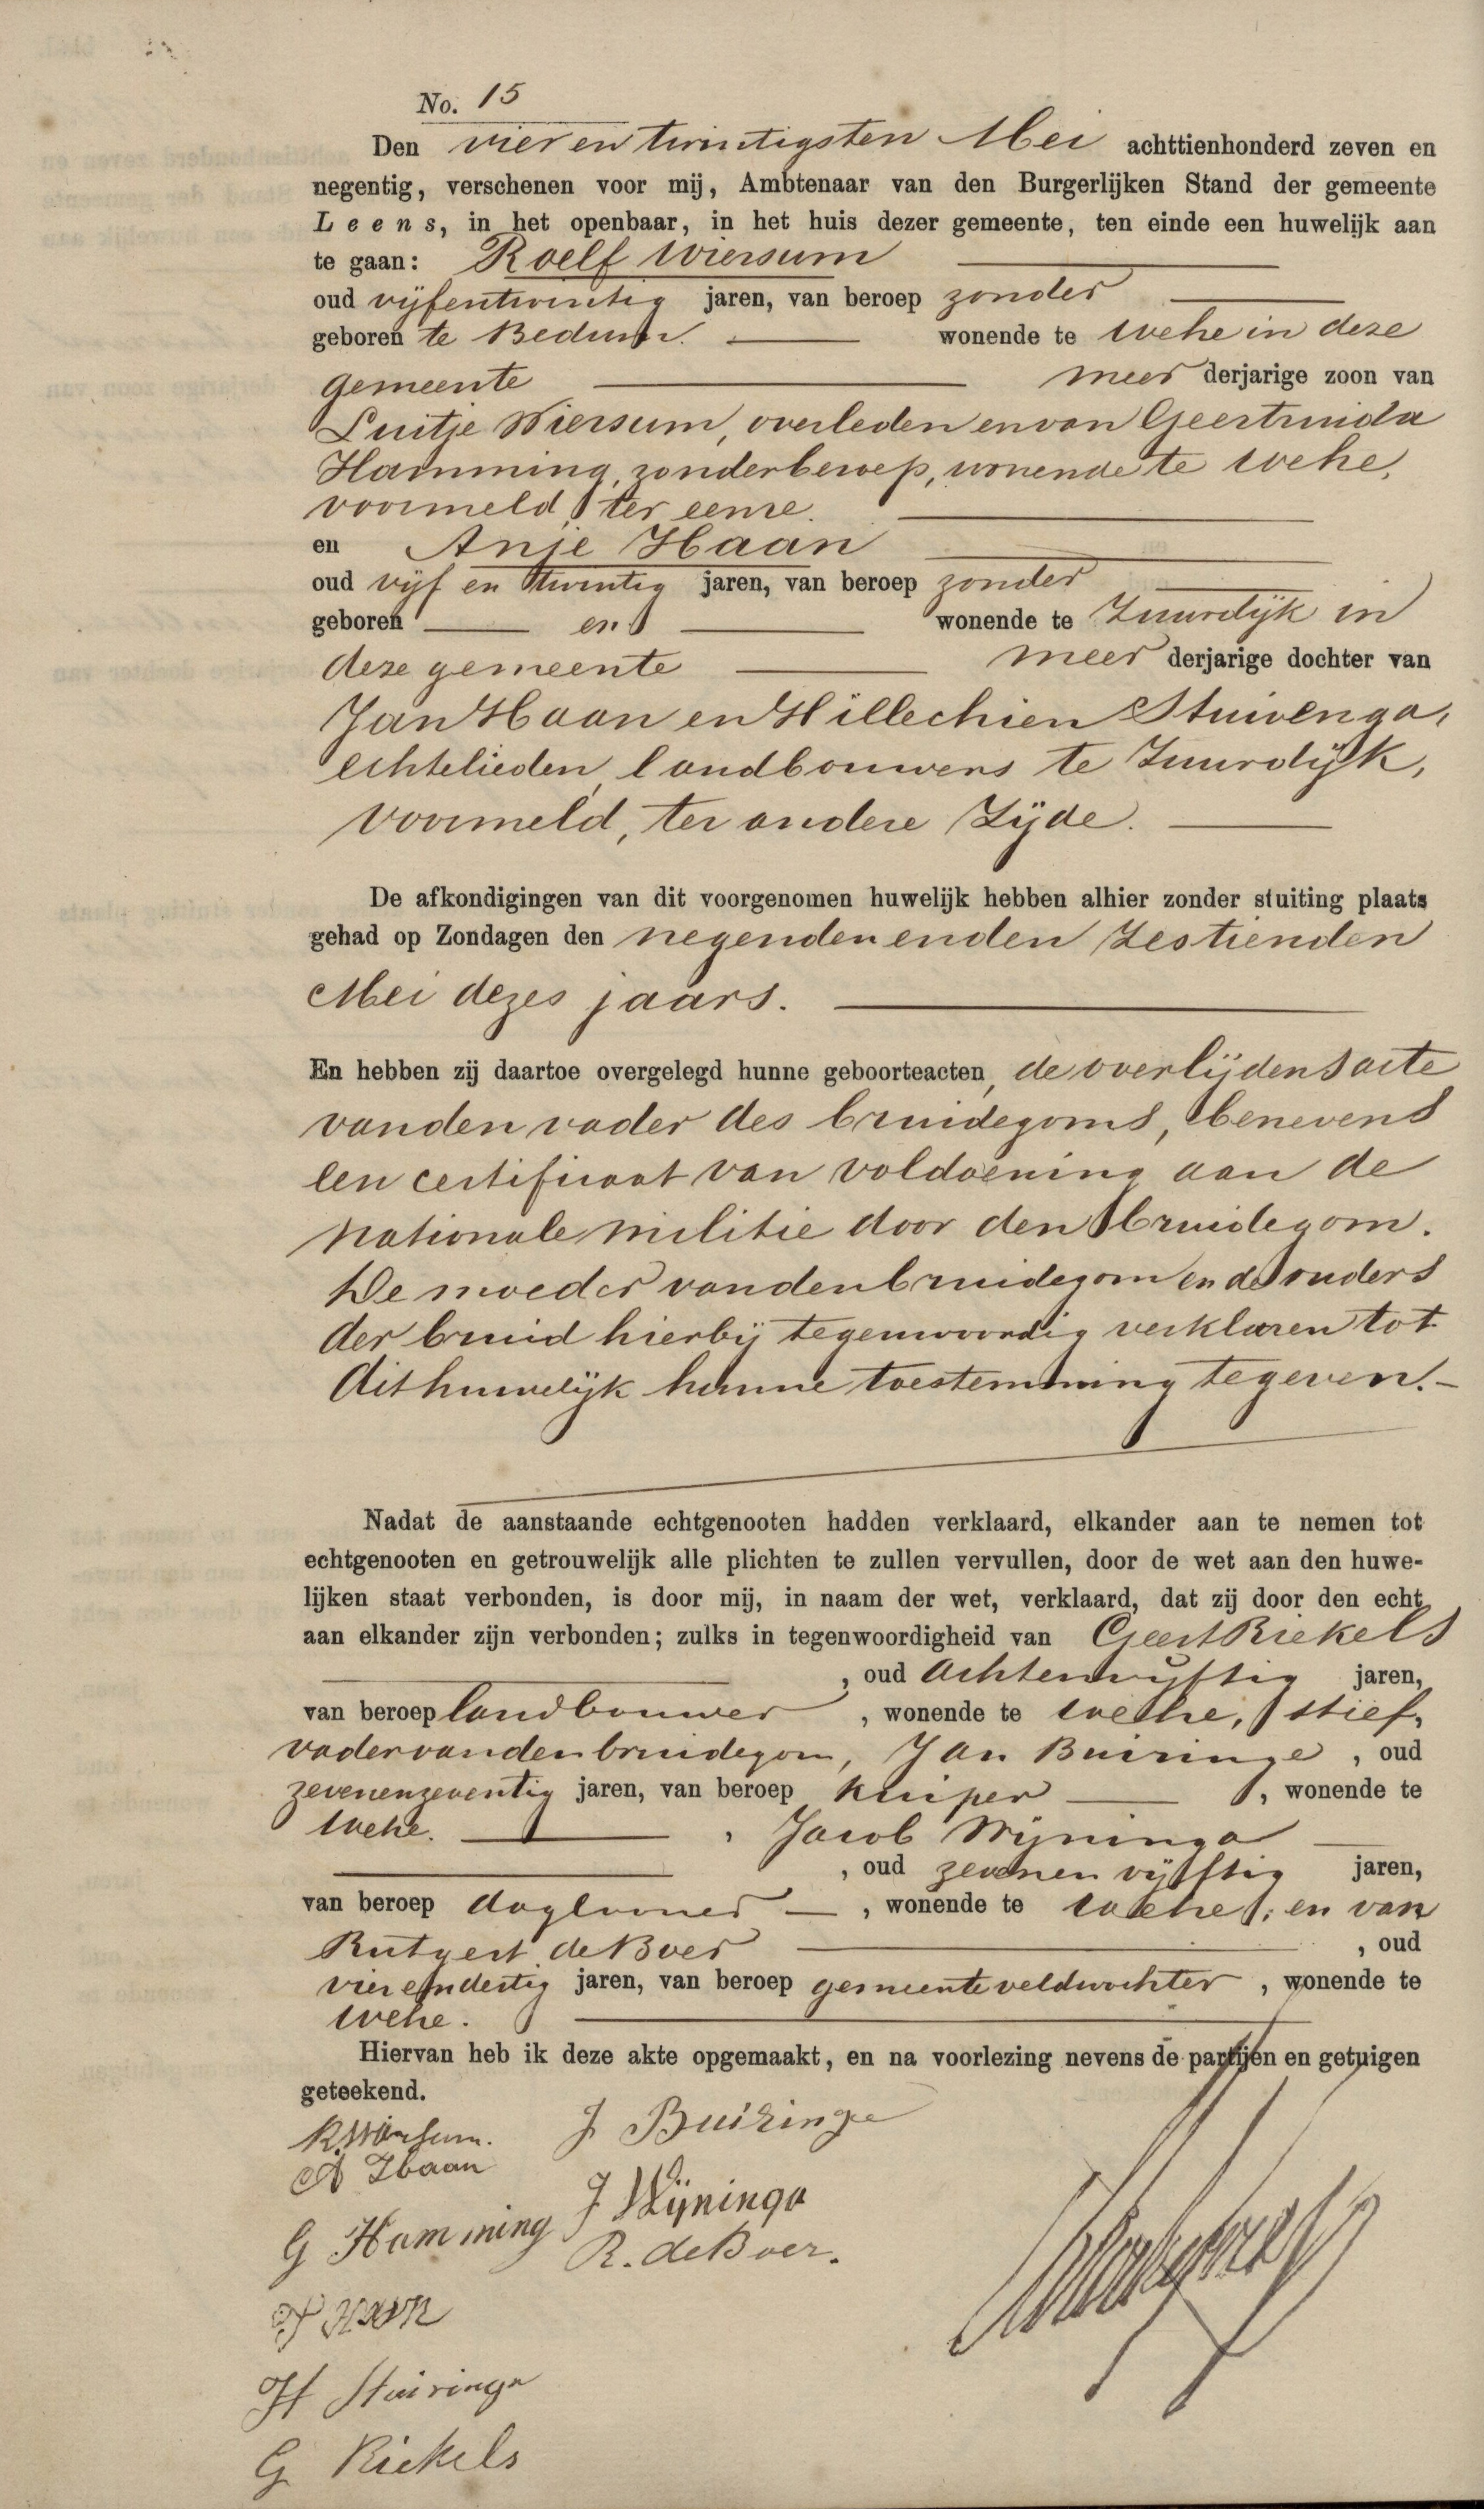 No. 15
Den vier en twintigsten Mei achttienhonderd zeven en
negentig, verschenen voor mij, Ambtenaar van den Burgerlijken Stand der gemeente
Leens, in het openbaar, in het huis dezer gemeente, ten einde een huwelijk aan
te gaan: Roelf Wiersum
oud vijfentwintig jaren, van beroep zonder
geboren te Bedum. wonende te Wehe in deze
gemeente meer derjarige zoon van
Luitje Wiersum, overleden en van Geertruida
Hamming, zonder beroep, wonende te Wehe,
voormeld, ter eenre.
en Anje Haan
oud vijf en twintig jaren, van beroep zonder
geboren en wonende te Zuurdijk in
deze gemeente meer derjarige dochter van
Jan Haan en Hillechien Stuivenga,
echtelieden, landbouwers te Zuurdijk,
voormeld, ter andere Zijde.
De afkondigingen van dit voorgenomen huwelijk hebben alhier zonder stuiting plaats
gehad op Zondagen den negenden en den Zestienden
Mei dezes jaars.
En hebben zij daartoe overgelegd hunne geboorteacten, de overlijdensacte
van den vader des bruidegoms, benevens
een certificaat van voldoening aan de
nationale militie door den bruidegom.
De moeder van den bruidegom en de ouders
der bruid hierbij tegenwoordig verklaren tot
dit huwelijk hunne toestemming te geven.-
Nadat de aanstaande echtgenooten hadden verklaard, elkander aan te nemen tot
echtgenooten en getrouwelijk alle plichten te zullen vervullen, door de wet aan den huwe-
lijken staat verbonden, is door mij, in naam der wet, verklaard, dat zij door den echt
aan elkander zijn verbonden; zulks in tegenwoordigheid van Geert Riekels
, oud achtenvijftig jaren,
van beroep landbouwer, wonende te Wehe, stief-
vader van den bruidegom, Jan Buiringe, oud
zevenenzeventig jaren, van beroep kuiper, wonende te
Wehe. , Jacob Wijninga
, oud zevenen vijftig jaren,
van beroep daglooner, wonende te Wehe; en van
Rutgert de Boer, oud
vier en dertig jaren, van beroep gemeente veldwachter, wonende te
Wehe.
Hiervan heb ik deze akte opgemaakt, en na voorlezing nevens de partijen en getuigen
geteekend.
R. Wiersum. J Buiringe
A Haan
G Hamming J Wijninga
R. de Boer.
J Haan
H Stuivinga
G Riekels